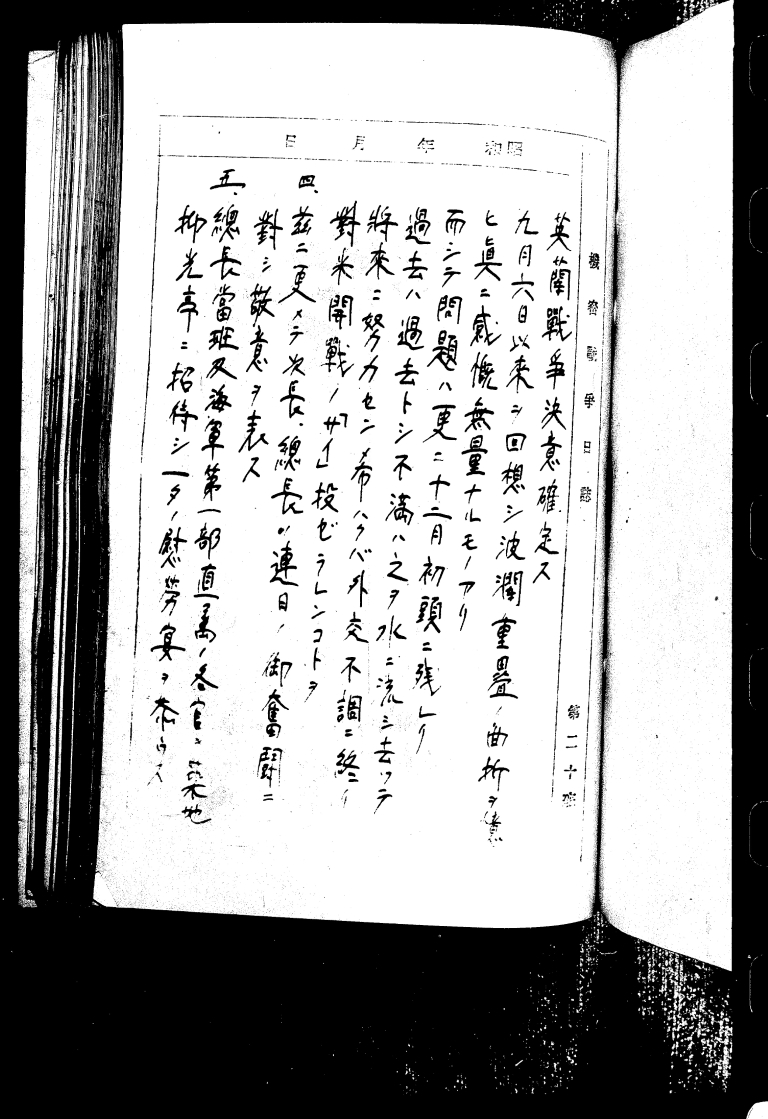 機密戰爭日誌
第二十班
昭和 年 月 日
英蘭戰爭決意確定ス
九月六日以来ヲ回想シ波瀾重畳ノ曲折ヲ憶
ヒ眞ニ感慨無量ナルモノアリ
而シテ問題ハ更ニ十二月初頭ニ残レリ
過去ハ過去トシ不満ハ之ヲ水ニ流シ去ツテ
將来ニ努力セン希ハクバ外交不調ニ終リ
對米開戰ノ「サイ」投ゼラレンコトヲ
四、茲ニ更メテ次長、總長ノ連日ノ御奮鬪ニ
對シ敬意ヲ表ス
五、總長當班及海軍第一部直属ノ各官ヲ築地
柳光亭ニ招待シ一夕ノ慰勞宴ヲ恭ウス